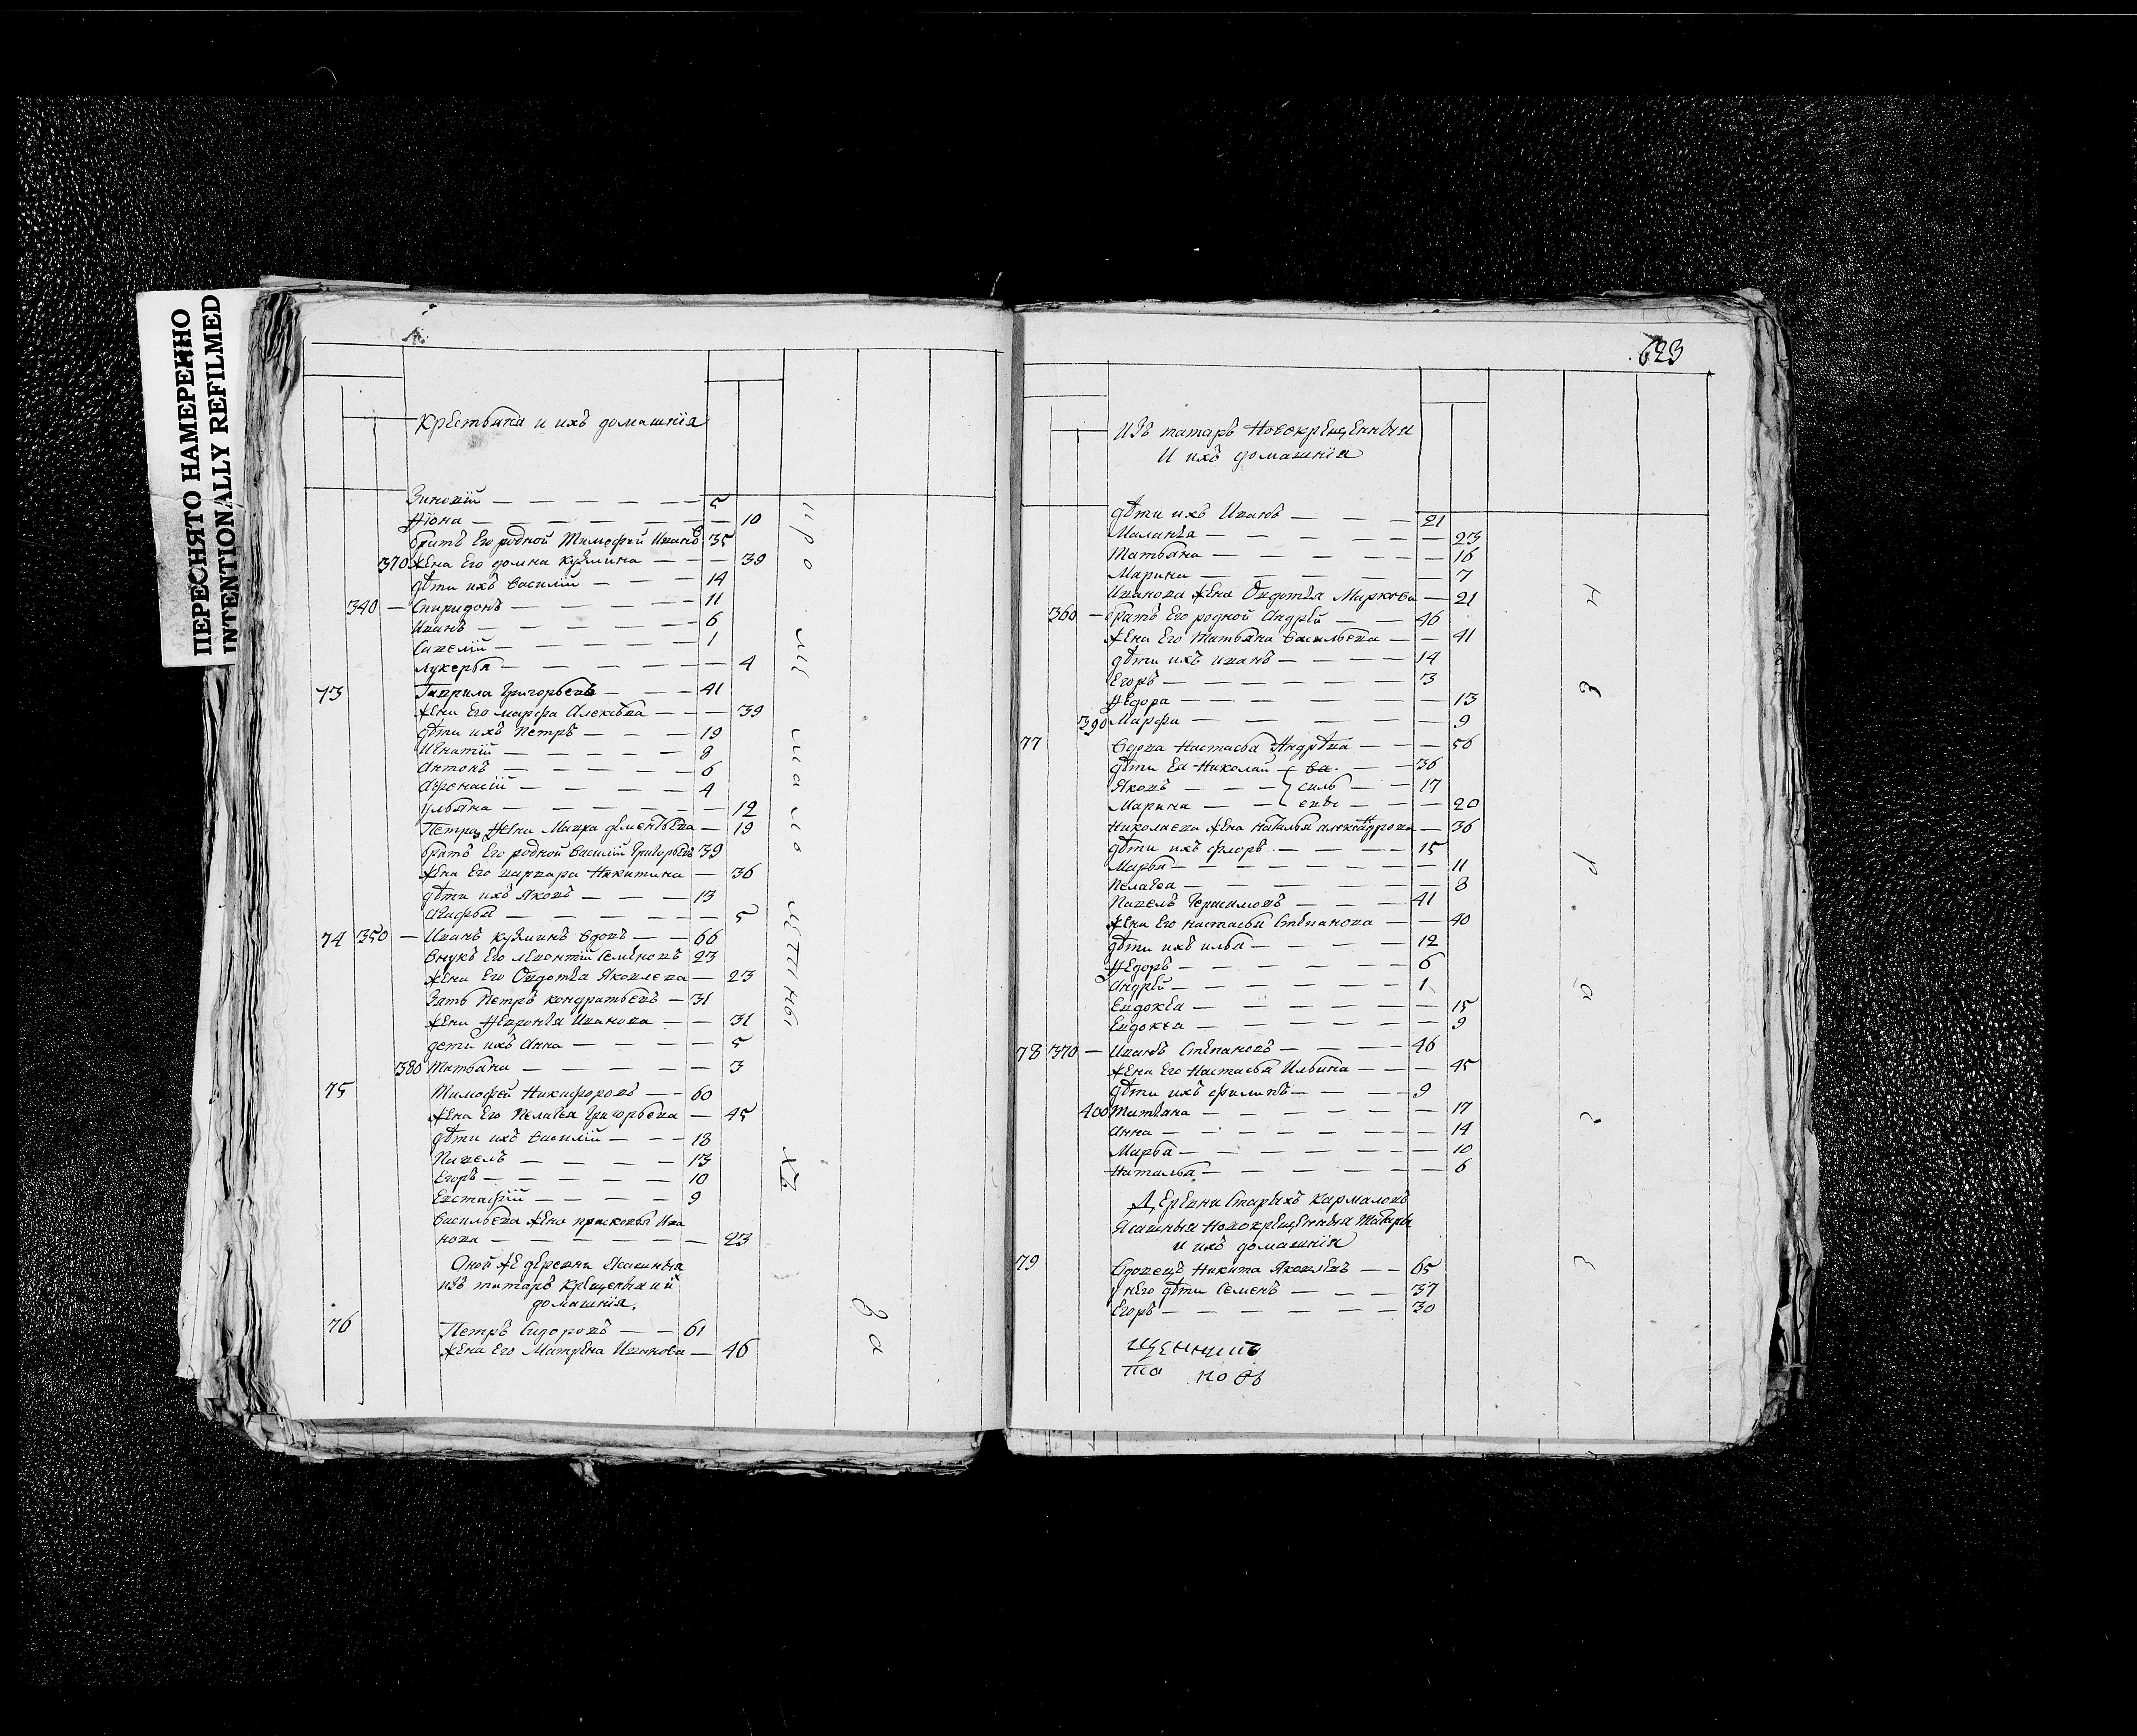 ПЕРЕСНЯТО НАМЕРЕННО
INTENTIONALLY REFILMED
Крестьяня и ихъ домашнія
Зиновій — 5
10
братъ Его родной Тимофей Иванъ 35
370 жена Его домна кузмина — 39
дѣти ихъ василій — 14
340 — Спиридонъ — 11
Иванъ — 6
Савелій — 1
лукерья — 4
73 Гаврила Григорьевъ — 41
жена Его марфа Алексѣва — 39
дѣти ихъ Петръ — 19
Игнатій — 8
Антонъ — 6
Афонасій — 4
ульяна — 12
Петра жена Мавра дѣментьева — 19
братъ Его родной василій Григорьевъ 39
жена Его варвара Никитина — 36
дѣти ихъ Яковъ — 13
Агафья — 5
74 350 — Иванъ кузминъ вдовъ — 66
внукъ Его леонтій Семеновъ 23
жена Его Овдотья Яковлева — 23
Зять Петръ кондратьевъ — 31
жена Февронья Иванова — 31
дети ихъ Анна — 5
380 Татьяна — 3
75 Тимофей Никифоровъ — 60
жена Его Пелагея Григорьева — 45
дѣти ихъ василій — 18
Павелъ — 13
Егоръ — 10
Евстафій — 9
васильева жена прасковья Ива
нова — 23
Оной же деревни Ясашныя
изъ татаръ крещеныя и й
домашнія.
76 Петръ Сидоровъ — 61
жена Его Матрена Иванова — 46
про
ми
шомо
метны
хъ
за
623
Изъ татаръ Новокрещенныя
И ихъ домашнія
дѣти ихъ Иванъ — 21
Маланья — 23
Татьяна — 16
Марина — 7
Иванова жена Овдотья Маркова — 21
360 — братъ Его родной Андрей — 46
жена Его Татьяна васильева — 41
дѣти ихъ иванъ — 14
Егоръ — 3
Федора — 13
390 Марфа — 9
77 вдова Настасья Андрѣва — 56
дѣти Ея Николай { ва — 36
Яковъ — { силь — 17
Марина — { евы — 20
Николаева жена наталья александрова — 36
дѣти ихъ флоръ — 15
Марья — 11
Пелагея — 8
Павелъ Герасимовъ — 41
жена Его настасья Степанова — 40
дѣти ихъ илья — 12
Федоръ — 6
Андрей — 1
Евдокея — 15
Евдокея — 9
78 370 — Иванъ Степановъ — 46
жена Его Настасья Ильина — 45
дѣти ихъ филипъ — 9
400 Татьяна — 17
Анна — 14
Марья — 10
Наталья — 6
Деревни Старыхъ Кармаловъ
Ясашныя Новокрещенныя Татары
и ихъ домашнія
79 вдовецъ Никита Яковлевъ — 65
у него дѣти Семенъ — 37
Егоръ — 30